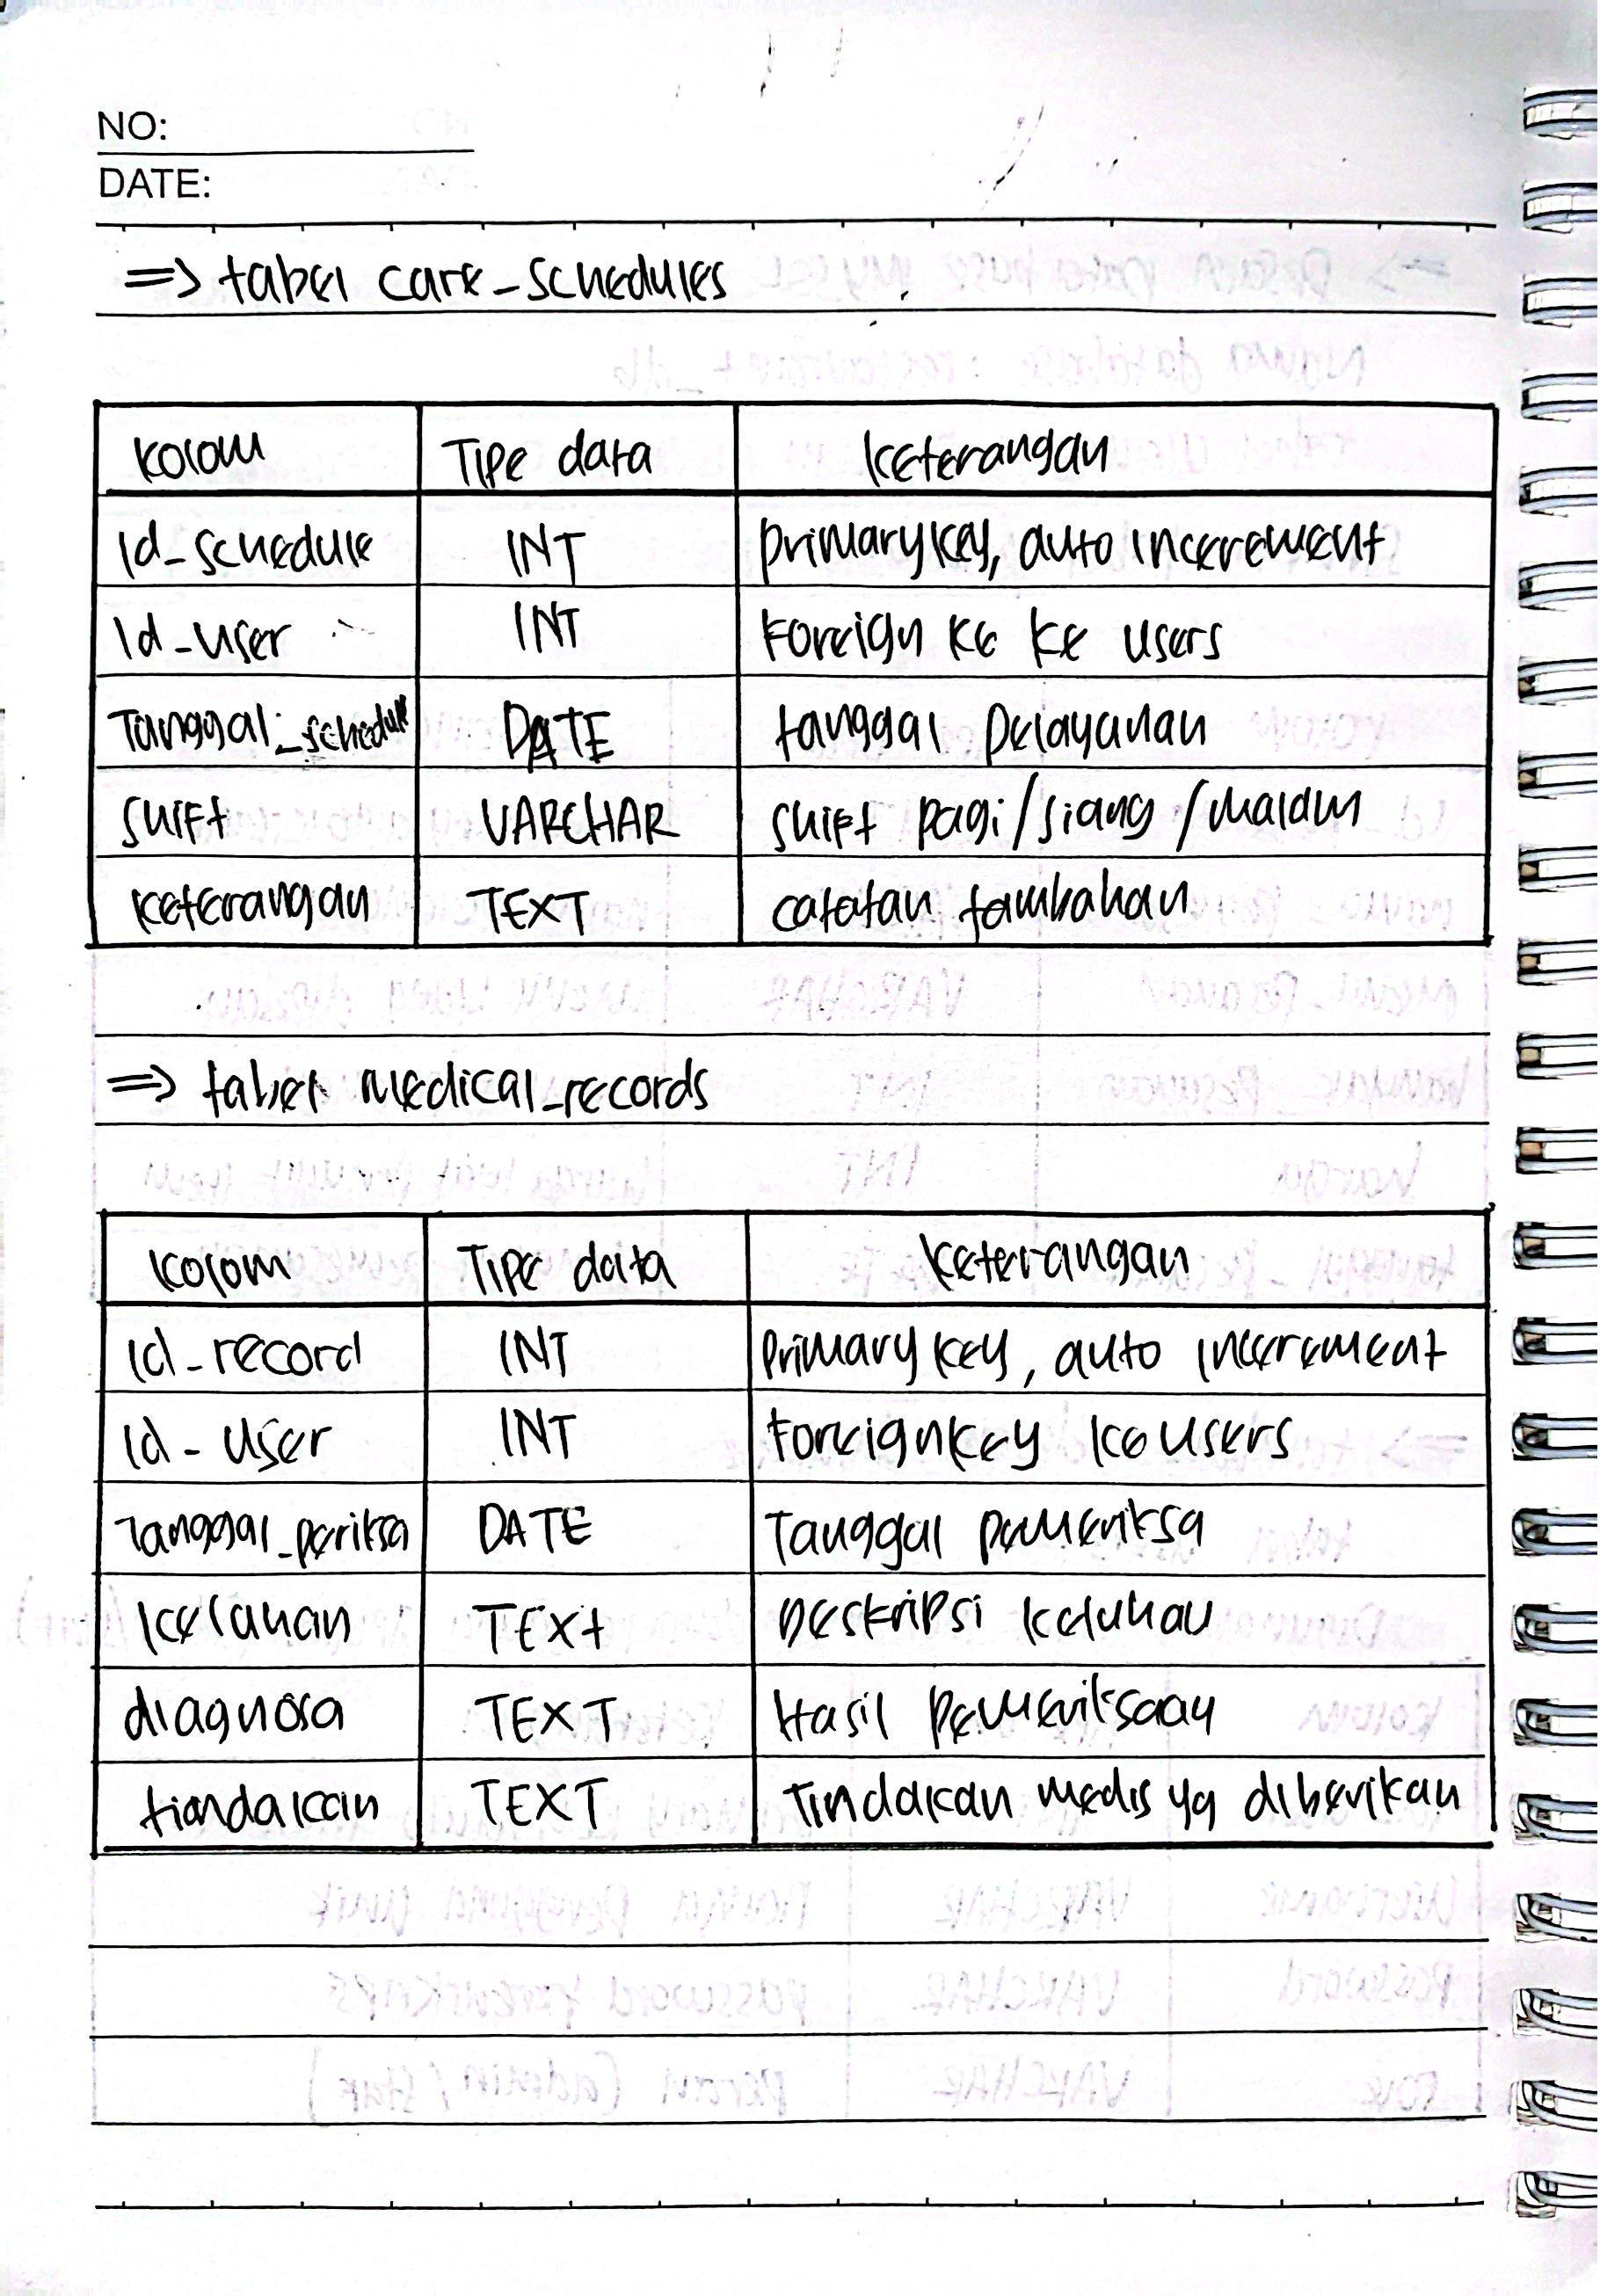 NO:
DATE:
=> tabel care_schedules
kolom Tipe data keterangan
id_schedule INT primary key, auto increment
id_user INT Foreign ke ke users
Tanggal_schedule DATE tanggal pelayanan
shift VARCHAR shift pagi/siang/malam
keterangan TEXT catatan tambahan
=> tabel medical_records
kolom Tipe data keterangan
id_record INT primary key, auto increment
id_user INT Foreign key ke users
Tanggal_periksa DATE Tanggal pemeriksa
keluhan TEXT Deskripsi keluhan
diagnosa TEXT Hasil pemeriksaan
tiandakan TEXT Tindakan medis yg diberikan